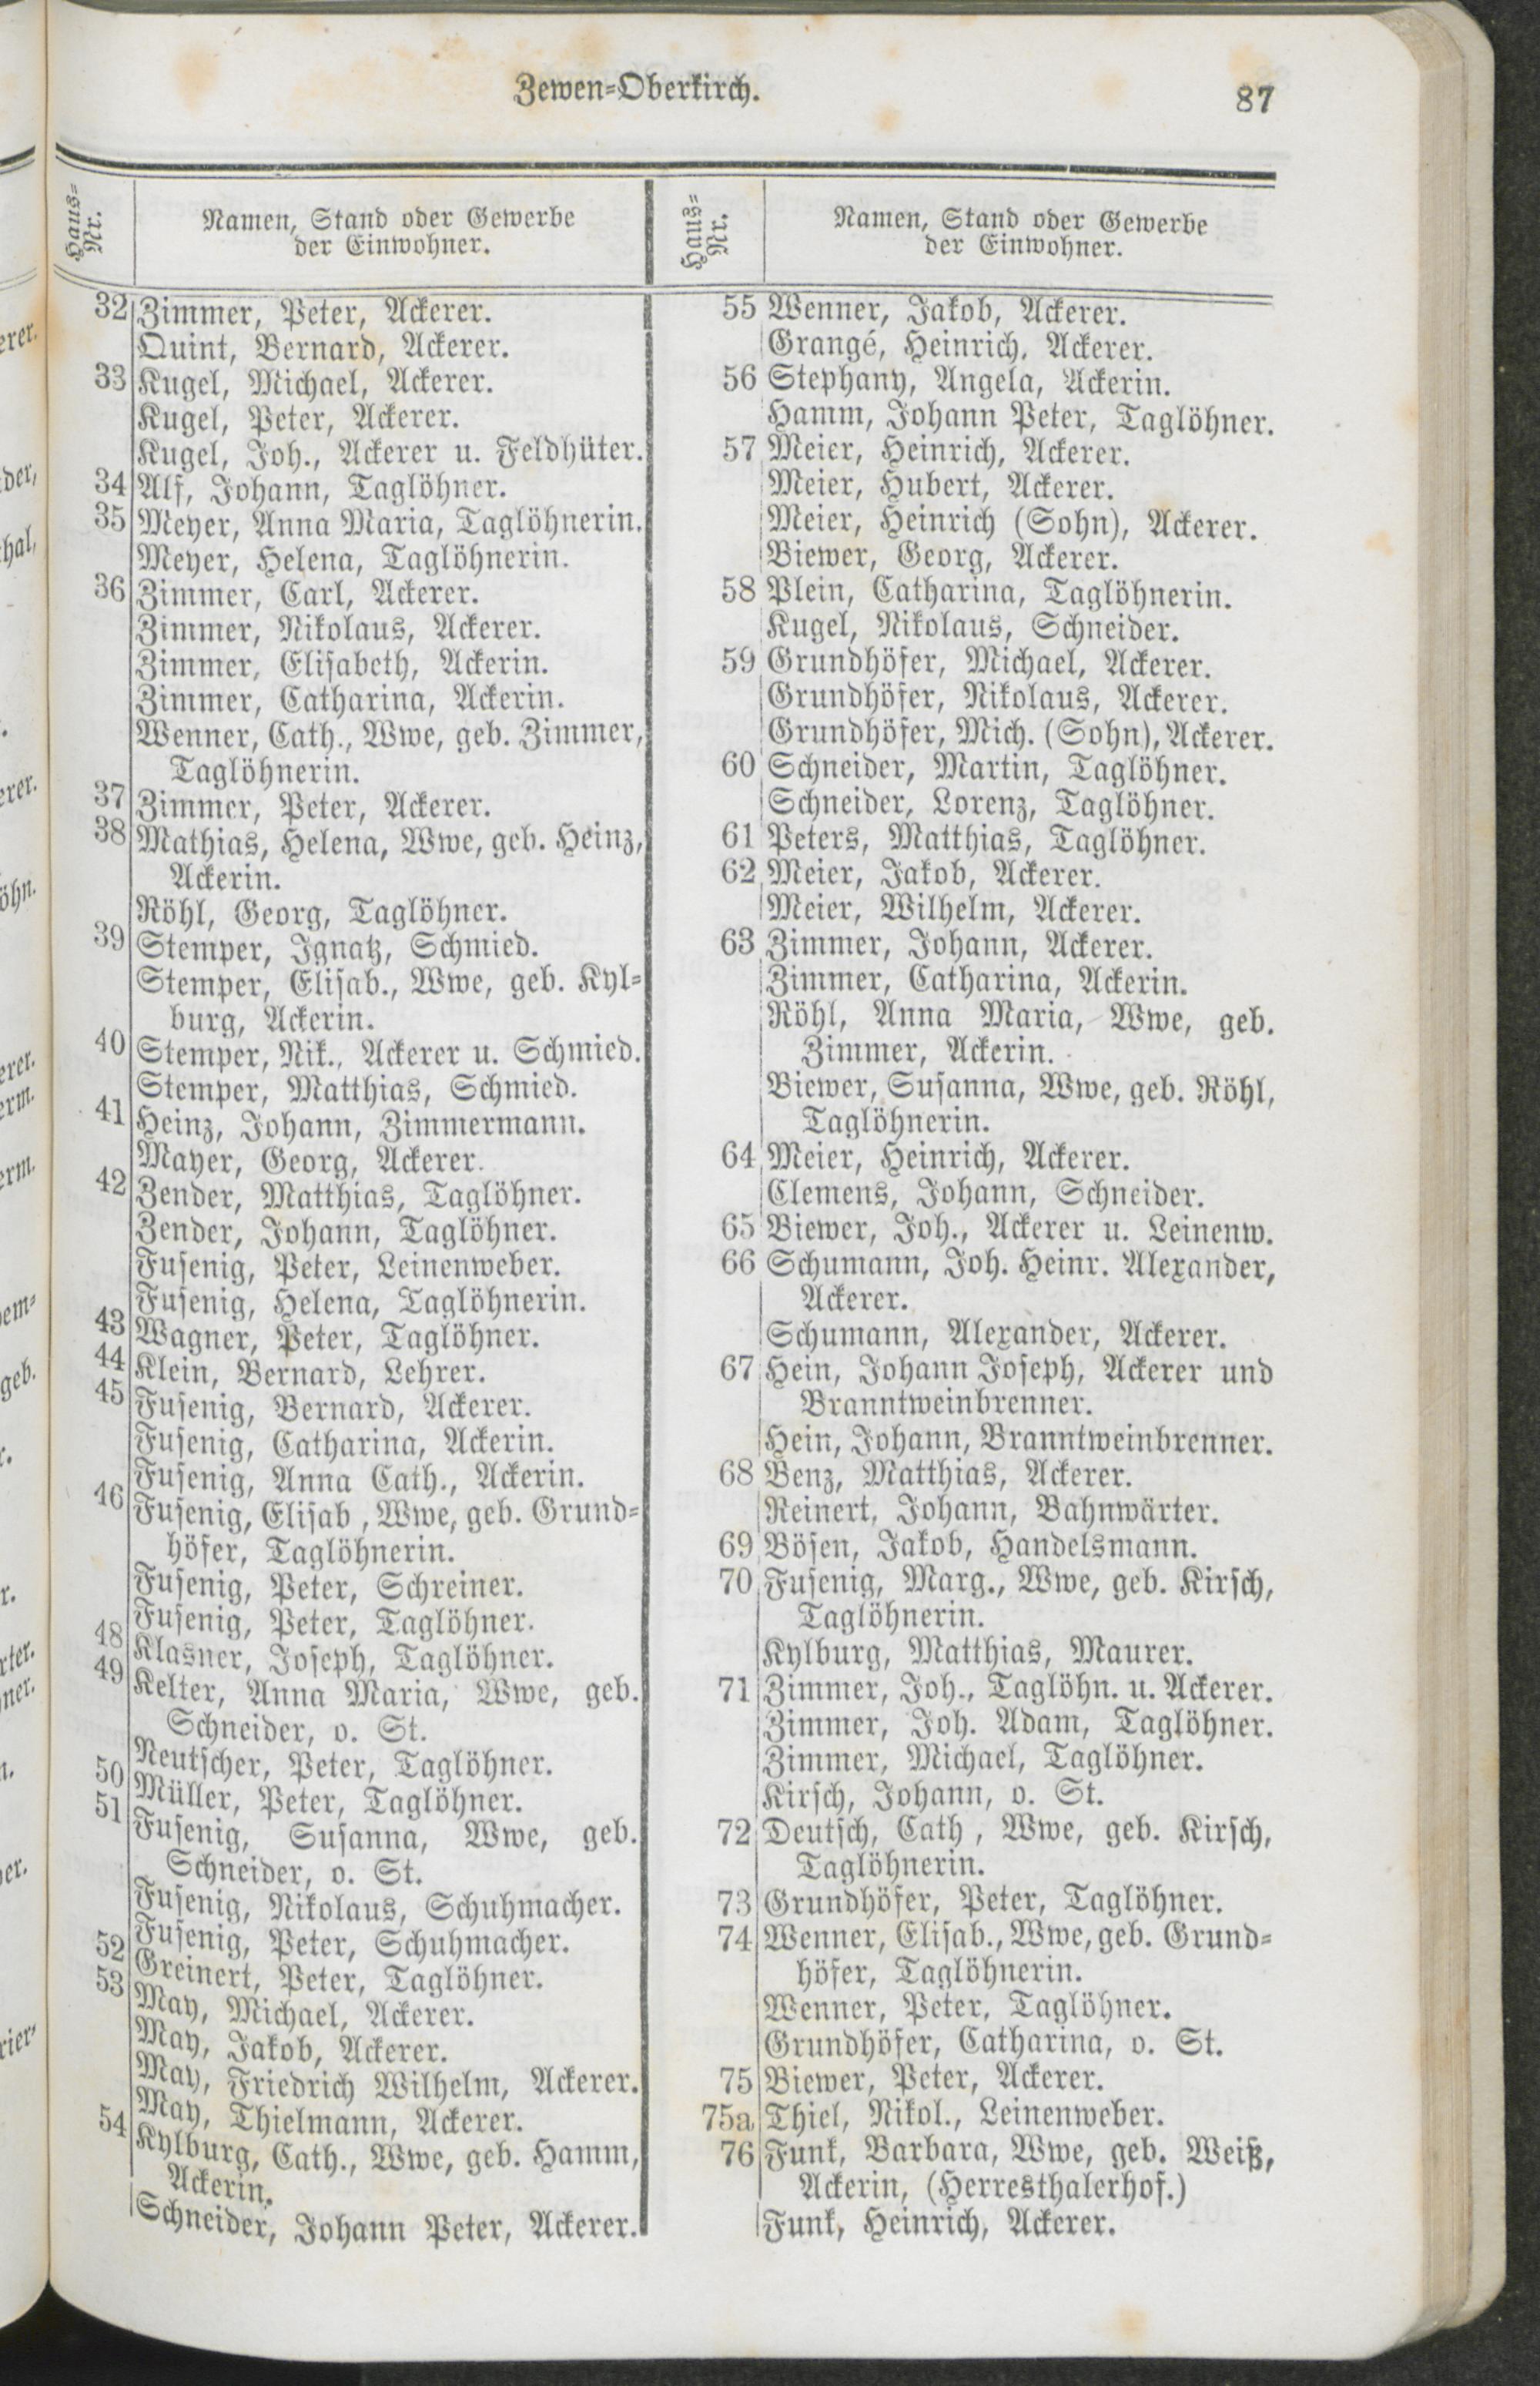 Zewen-Oberkirch.
87
Haus-
Nr.
Namen, Stand oder Gewerbe
der Einwohner.
32 Zimmer, Peter, Ackerer.
Quint, Bernard, Ackerer.
33 Kugel, Michael, Ackerer.
Kugel, Peter, Ackerer.
Kugel, Joh., Ackerer u. Feldhüter.
34 Alf, Johann, Taglöhner.
35 Meyer, Anna Maria, Taglöhnerin.
Meyer, Helena, Taglöhnerin.
36 Zimmer, Carl, Ackerer.
Zimmer, Nikolaus, Ackerer.
Zimmer, Elisabeth, Ackerin.
Zimmer, Catharina, Ackerin.
Wenner, Cath., Wwe, geb. Zimmer,
Taglöhnerin.
37 Zimmer, Peter, Ackerer.
38 Mathias, Helena, Wwe, geb. Heinz,
Ackerin.
Röhl, Georg, Taglöhner.
39 Stemper, Ignatz, Schmied.
Stemper, Elisab., Wwe, geb. Kyl-
burg, Ackerin.
40 Stemper, Nik., Ackerer u. Schmied.
Stemper, Matthias, Schmied.
41 Heinz, Johann, Zimmermann.
Mayer, Georg, Ackerer.
42 Zender, Matthias, Taglöhner.
Zender, Johann, Taglöhner.
Fusenig, Peter, Leinenweber.
Fusenig, Helena, Taglöhnerin.
43 Wagner, Peter, Taglöhner.
44 Klein, Bernard, Lehrer.
45 Fusenig, Bernard, Ackerer.
Fusenig, Catharina, Ackerin.
Fusenig, Anna Cath., Ackerin.
46 Fusenig, Elisab, Wwe, geb. Grund-
höfer, Taglöhnerin.
Fusenig, Peter, Schreiner.
Fusenig, Peter, Taglöhner.
48 Klasner, Joseph, Taglöhner.
49 Kelter, Anna Maria, Wwe, geb.
Schneider, o. St.
Neutscher, Peter, Taglöhner.
50 Müller, Peter, Taglöhner.
51 Fusenig, Susanna, Wwe, geb.
Schneider, o. St.
Fusenig, Nikolaus, Schuhmacher.
Fusenig, Peter, Schuhmacher.
52 Greinert, Peter, Taglöhner.
53 May, Michael, Ackerer.
May, Jakob, Ackerer.
May, Friedrich Wilhelm, Ackerer.
May, Thielmann, Ackerer.
54 Kylburg, Cath., Wwe, geb. Hamm,
Ackerin.
Schneider, Johann Peter, Ackerer.
Haus-
Nr.
Namen, Stand oder Gewerbe
der Einwohner.
55 Wenner, Jakob, Ackerer.
Grangé, Heinrich, Ackerer.
56 Stephany, Angela, Ackerin.
Hamm, Johann Peter, Taglöhner.
57 Meier, Heinrich, Ackerer.
Meier, Hubert, Ackerer.
Meier, Heinrich (Sohn), Ackerer.
Biewer, Georg, Ackerer.
58 Plein, Catharina, Taglöhnerin.
Kugel, Nikolaus, Schneider.
59 Grundhöfer, Michael, Ackerer.
Grundhöfer, Nikolaus, Ackerer.
Grundhöfer, Mich. (Sohn), Ackerer.
60 Schneider, Martin, Taglöhner.
Schneider, Lorenz, Taglöhner.
61 Peters, Matthias, Taglöhner.
62 Meier, Jakob, Ackerer.
Meier, Wilhelm, Ackerer.
63 Zimmer, Johann, Ackerer.
Zimmer, Catharina, Ackerin.
Röhl, Anna Maria, Wwe, geb.
Zimmer, Ackerin.
Biewer, Susanna, Wwe, geb. Röhl,
Taglöhnerin.
64 Meier, Heinrich, Ackerer.
Clemens, Johann, Schneider.
65 Biewer, Joh., Ackerer u. Leinenw.
66 Schumann, Joh. Heinr. Alexander,
Ackerer.
Schumann, Alexander, Ackerer.
67 Hein, Johann Joseph, Ackerer und
Branntweinbrenner.
Hein, Johann, Branntweinbrenner.
68 Benz, Matthias, Ackerer.
Reinert, Johann, Bahnwärter.
69 Bösen, Jakob, Handelsmann.
70 Fusenig, Marg., Wwe, geb. Kirsch,
Taglöhnerin.
Kylburg, Matthias, Maurer.
71 Zimmer, Joh., Taglöhn. u. Ackerer.
Zimmer, Joh. Adam, Taglöhner.
Zimmer, Michael, Taglöhner.
Kirsch, Johann, o. St.
72 Deutsch, Cath, Wwe, geb. Kirsch,
Taglöhnerin.
73 Grundhöfer, Peter, Taglöhner.
74 Wenner, Elisab., Wwe, geb. Grund-
höfer, Taglöhnerin.
Wenner, Peter, Taglöhner.
Grundhöfer, Catharina, o. St.
75 Biewer, Peter, Ackerer.
75a Thiel, Nikol., Leinenweber.
76 Funk, Barbara, Wwe, geb. Weiß,
Ackerin, (Herresthalerhof.)
Funk, Heinrich, Ackerer.